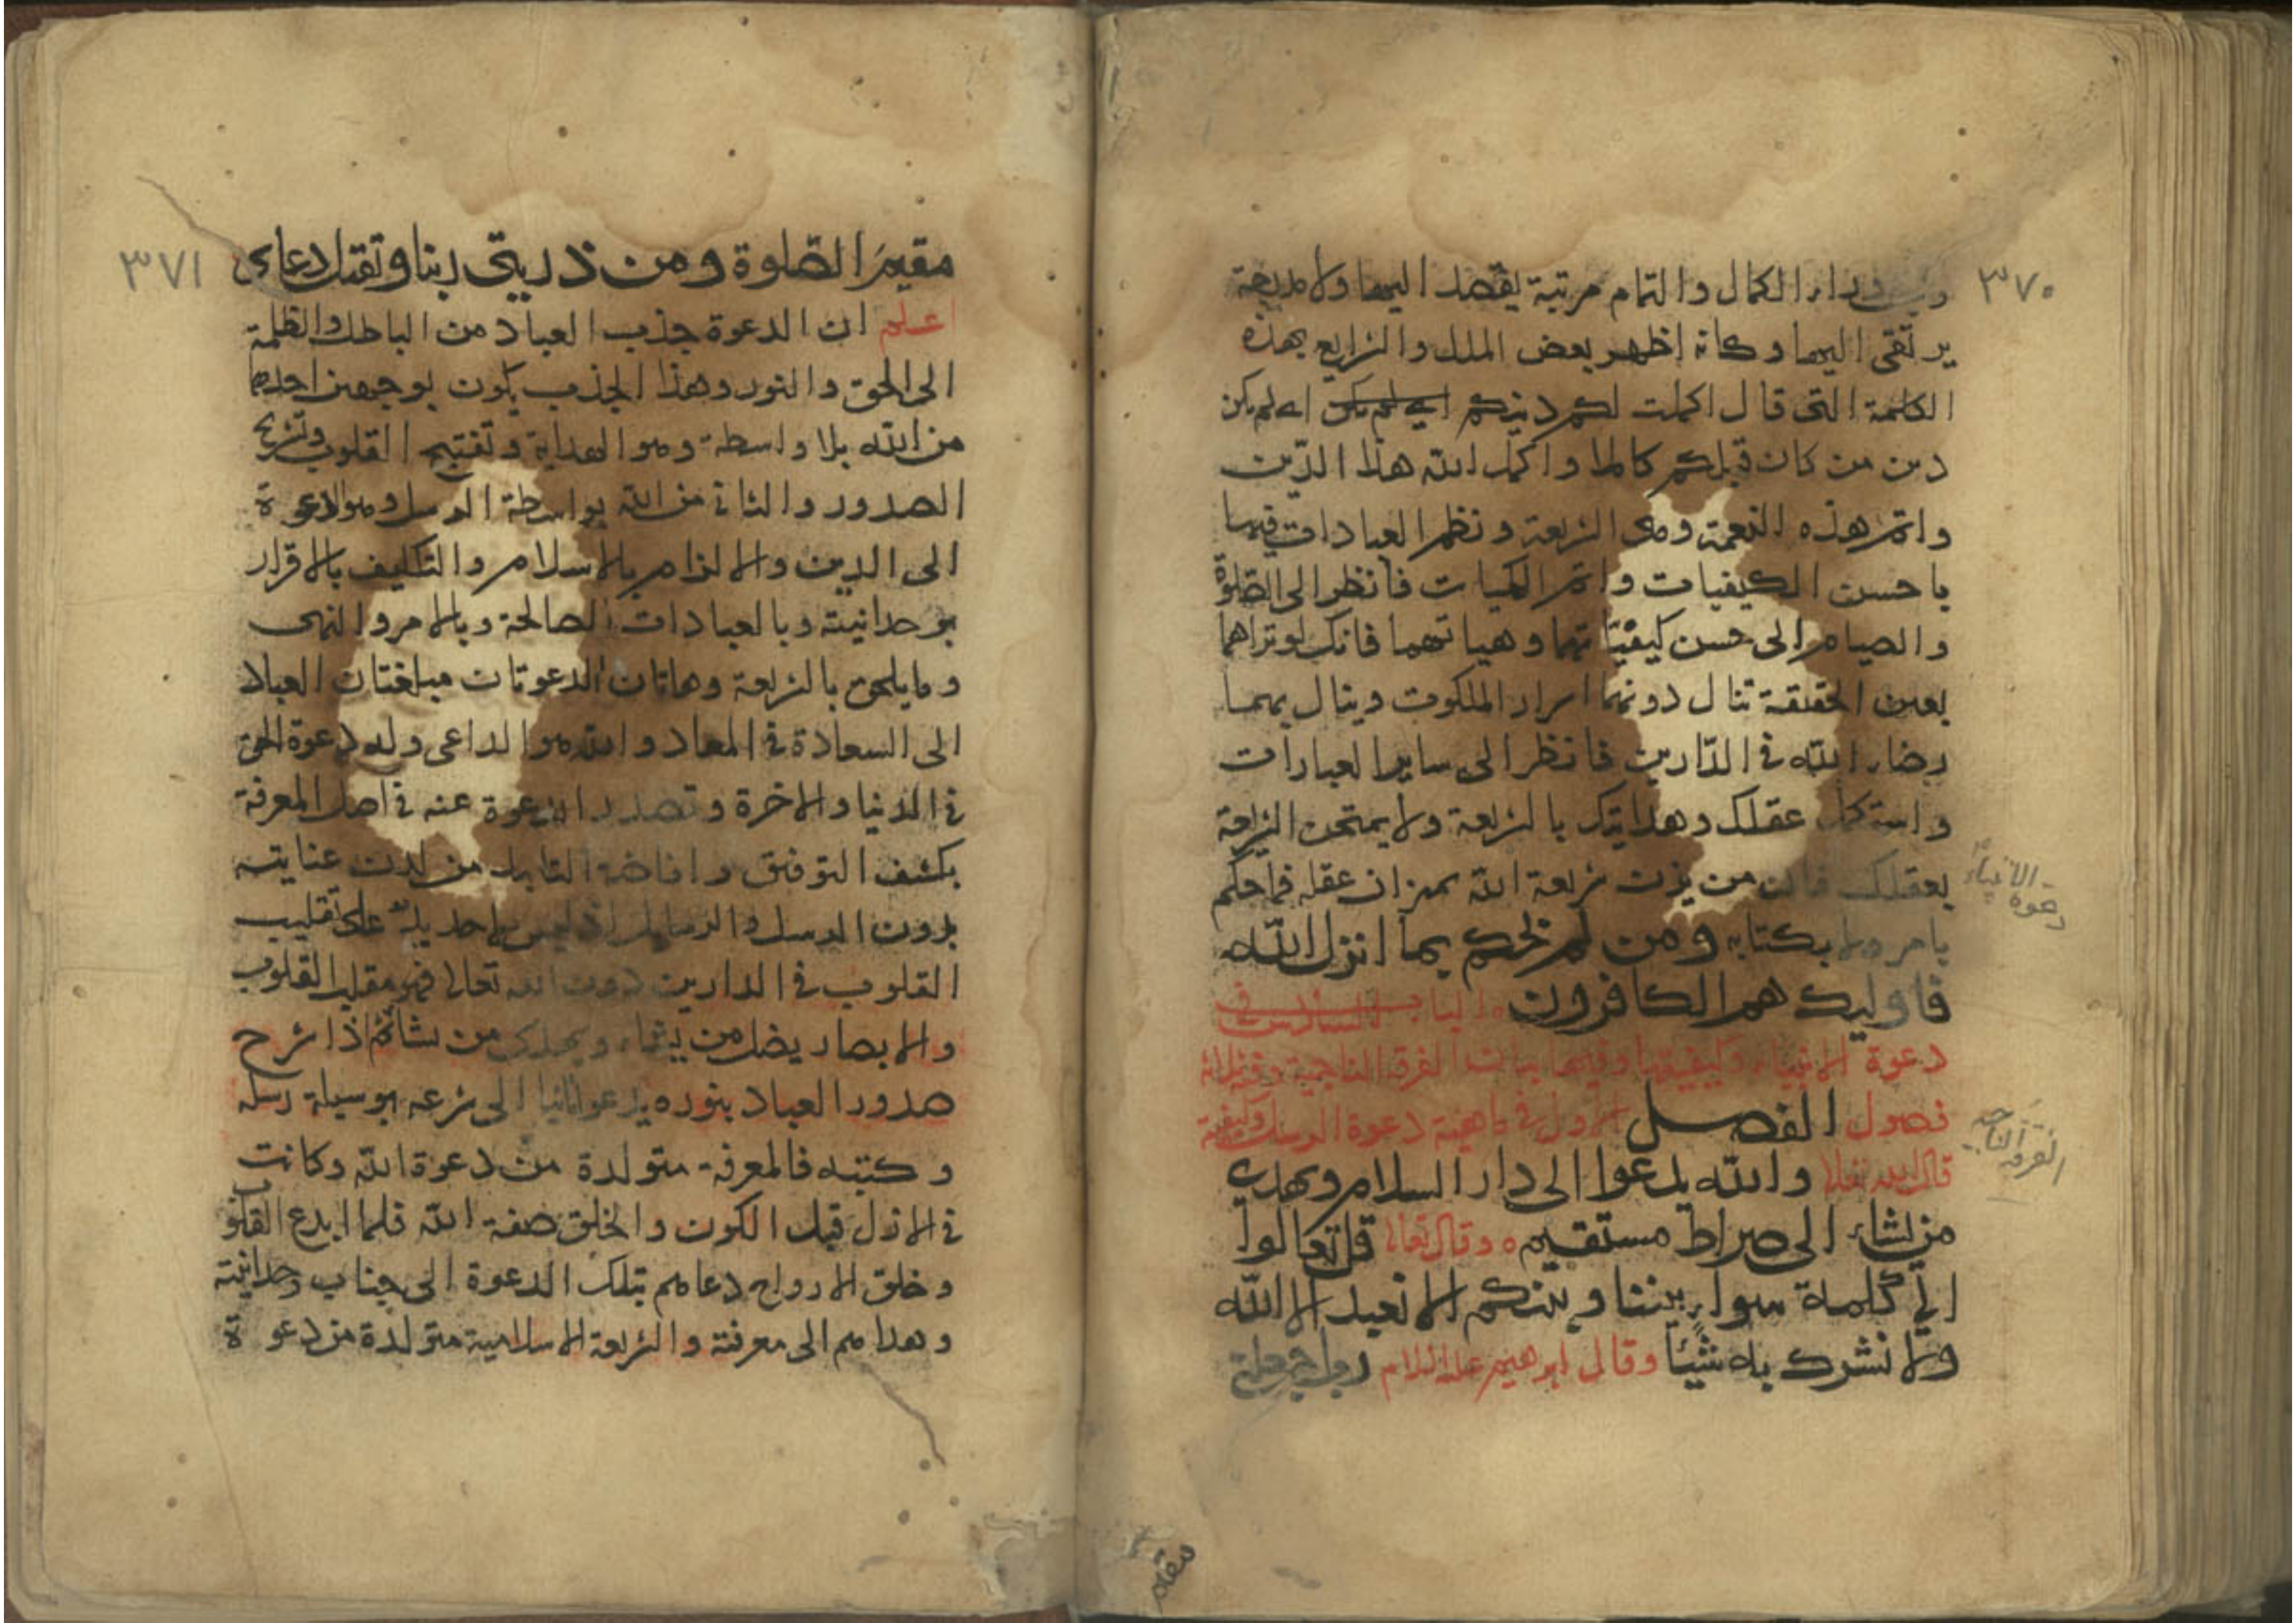 ٣٧٠
وراء الكمال والتمام مرتبة يقصد اليها ولا مدرجة
يرتقى اليها وكانه اظهر بعض الملل والشرايع بهذه
الكلمة التى قال اكملت لكم دينكم اى لم يكن اى لم يكن
دين من كان قبلكم كاملا واكمل الله هذا الدّين
واتم هذه النعمة وهى الشريعة ونظم العبادات فيها
باحسن الكيفيات واتم الكميات فانظر الى الصّلوة
والصيام الى حسن كيفيّاتهما وهياتهما فانك لو تراهما
بعين الحقيقة تنال دونهما اسرار الملكوت وينال بهما
رضاء الله فى الدّارين فانظر الى ساير العبادات
واستكمل عقلك وهدايتك بالشريعة ولا يمتحن الشريعة
بعقلك فان من يزن شريعة الله بميزان عقله فما حكم
بامر ولا بكتابه ومن لم يحكم بما انزل الله
فاوليك هم الكافرون الباب السادس فى
دعوة الانبياء وكيفيتها وفيها بيان الفرقة الناجية وفيه ثلثة
فصول الفصل الاول فى ماهية دعوة الرسل وكيفية
قال الله تعالى والله يدعوا الى دار السلام ويهدى
من يشاء الى صراط مستقيم وقال تعالى قل تعالوا
الى كلمة سواء بيننا وبينكم الا نعبد الا الله
ولا نشرك به شيئا وقال ابرهيم عليه السلام رب اجعلنى
دعوة الانبياء
الفرقة الناجية
مقيم
٣٧١
مقيم الصّلوة ومن ذريتى ربنا وتقبل دعاى
اعلم ان الدعوة جذب العباد من الباطل والظلمة
الى الحق والنور وهذا الجذب يكون بوجهين احدهما
من الله بلا واسطة وهو الهداية وتفتيح القلوب وتشريح
الصدور والثانى من الله بواسطة الرسل وهو الدعوة
الى الدين والالزام بالاسلام والتكليف بالاقرار
بوحدانيته وبالعبادات الصالحة وبالامر والنهى
وما يلحق بالشريعة وهاتان الدعوتان مبلغتان العباد
الى السعادة فى المعاد والله هو الداعى وله دعوة الحق
فى الدنيا والاخرة وتصدر الدعوة عنه فى اصل المعرفة
بكشف التوفيق وافاضة التاييد من لدن عنايته
بدون الرسل والرسايل اذ ليس لاحد يد على تقليب
القلوب فى الدارين دون الله تعالى فهو مقلب القلوب
والابصار يضل من يشاء ويهدى من يشا ثم اذا شرح
صدور العباد بنوره يدعو ثانيا الى شرعه بوسيلة رسله
وكتبه فالمعرفة متولدة من دعوة الله وكانت
فى الازل قبل الكون والخلق صفة الله فلما ابدع القلوب
وخلق الارواح دعاهم بتلك الدعوة الى جناب وحدانيته
وهداهم الى معرفته والشريعة الاسلامية متولدة من دعوة